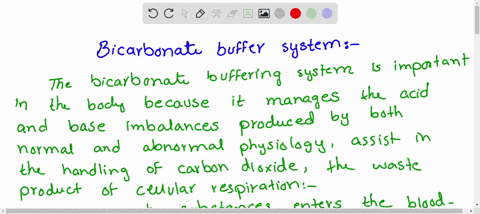 Bicarbonate buffer system:-
The bicarbonate buffering system is important
in the body because it manages the acid
and base imbalances produced by both
normal and abnormal physiology, assist in
the handling of carbon dioxide, the waste
product of cellular respiration:-
substances enters the blood-